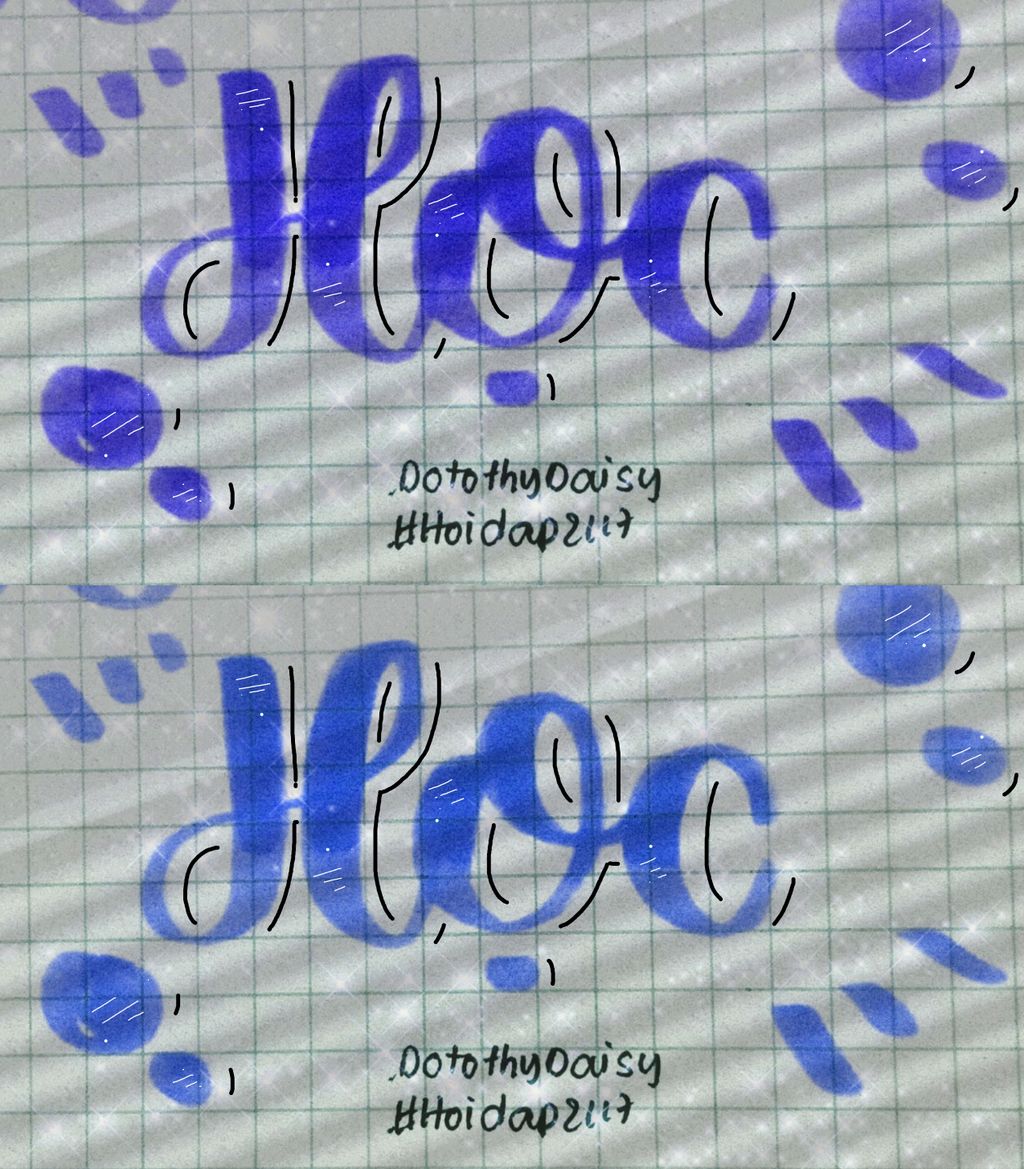 Học
.DotothyDaisy
#Hoidap2117
Học
.DotothyDaisy
#Hoidap2117